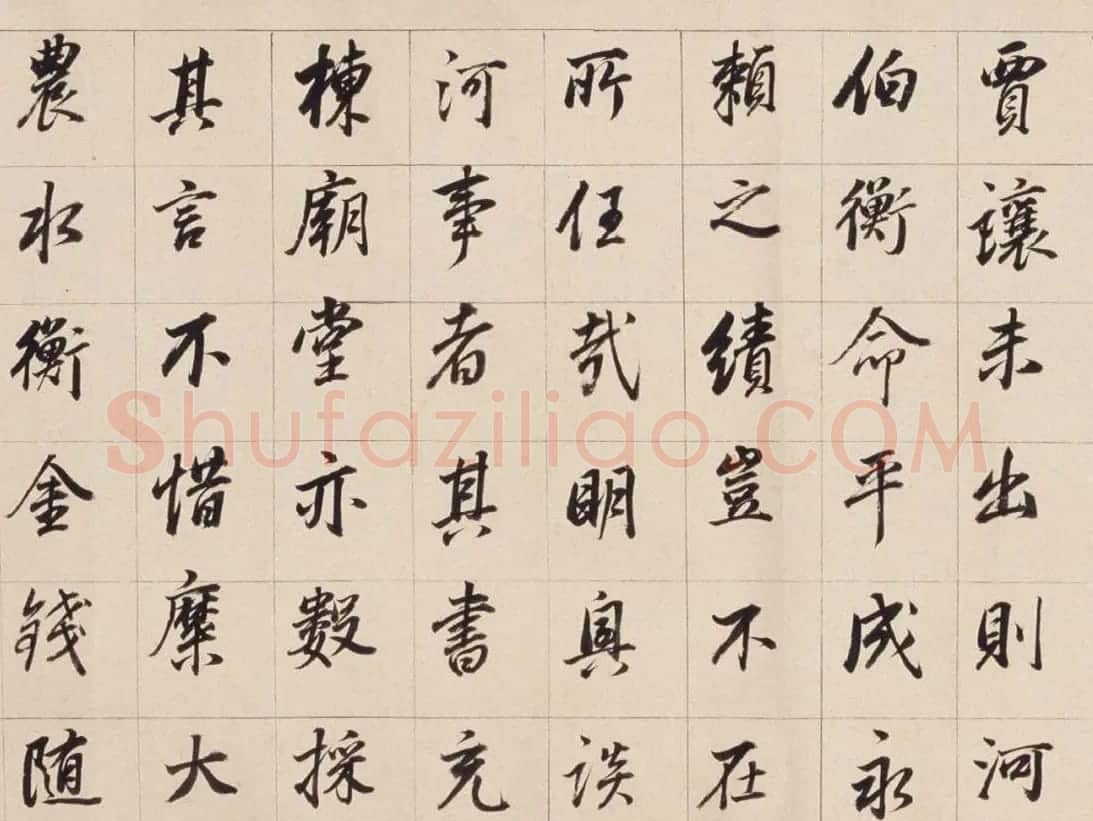 賈讓未出則河
伯衡命平成永
賴之績豈不在
所任哉明與談
河事者其書充
棟廟堂亦數採
其言不惜縻大
農水衡金錢随
Shufaziliao.COM